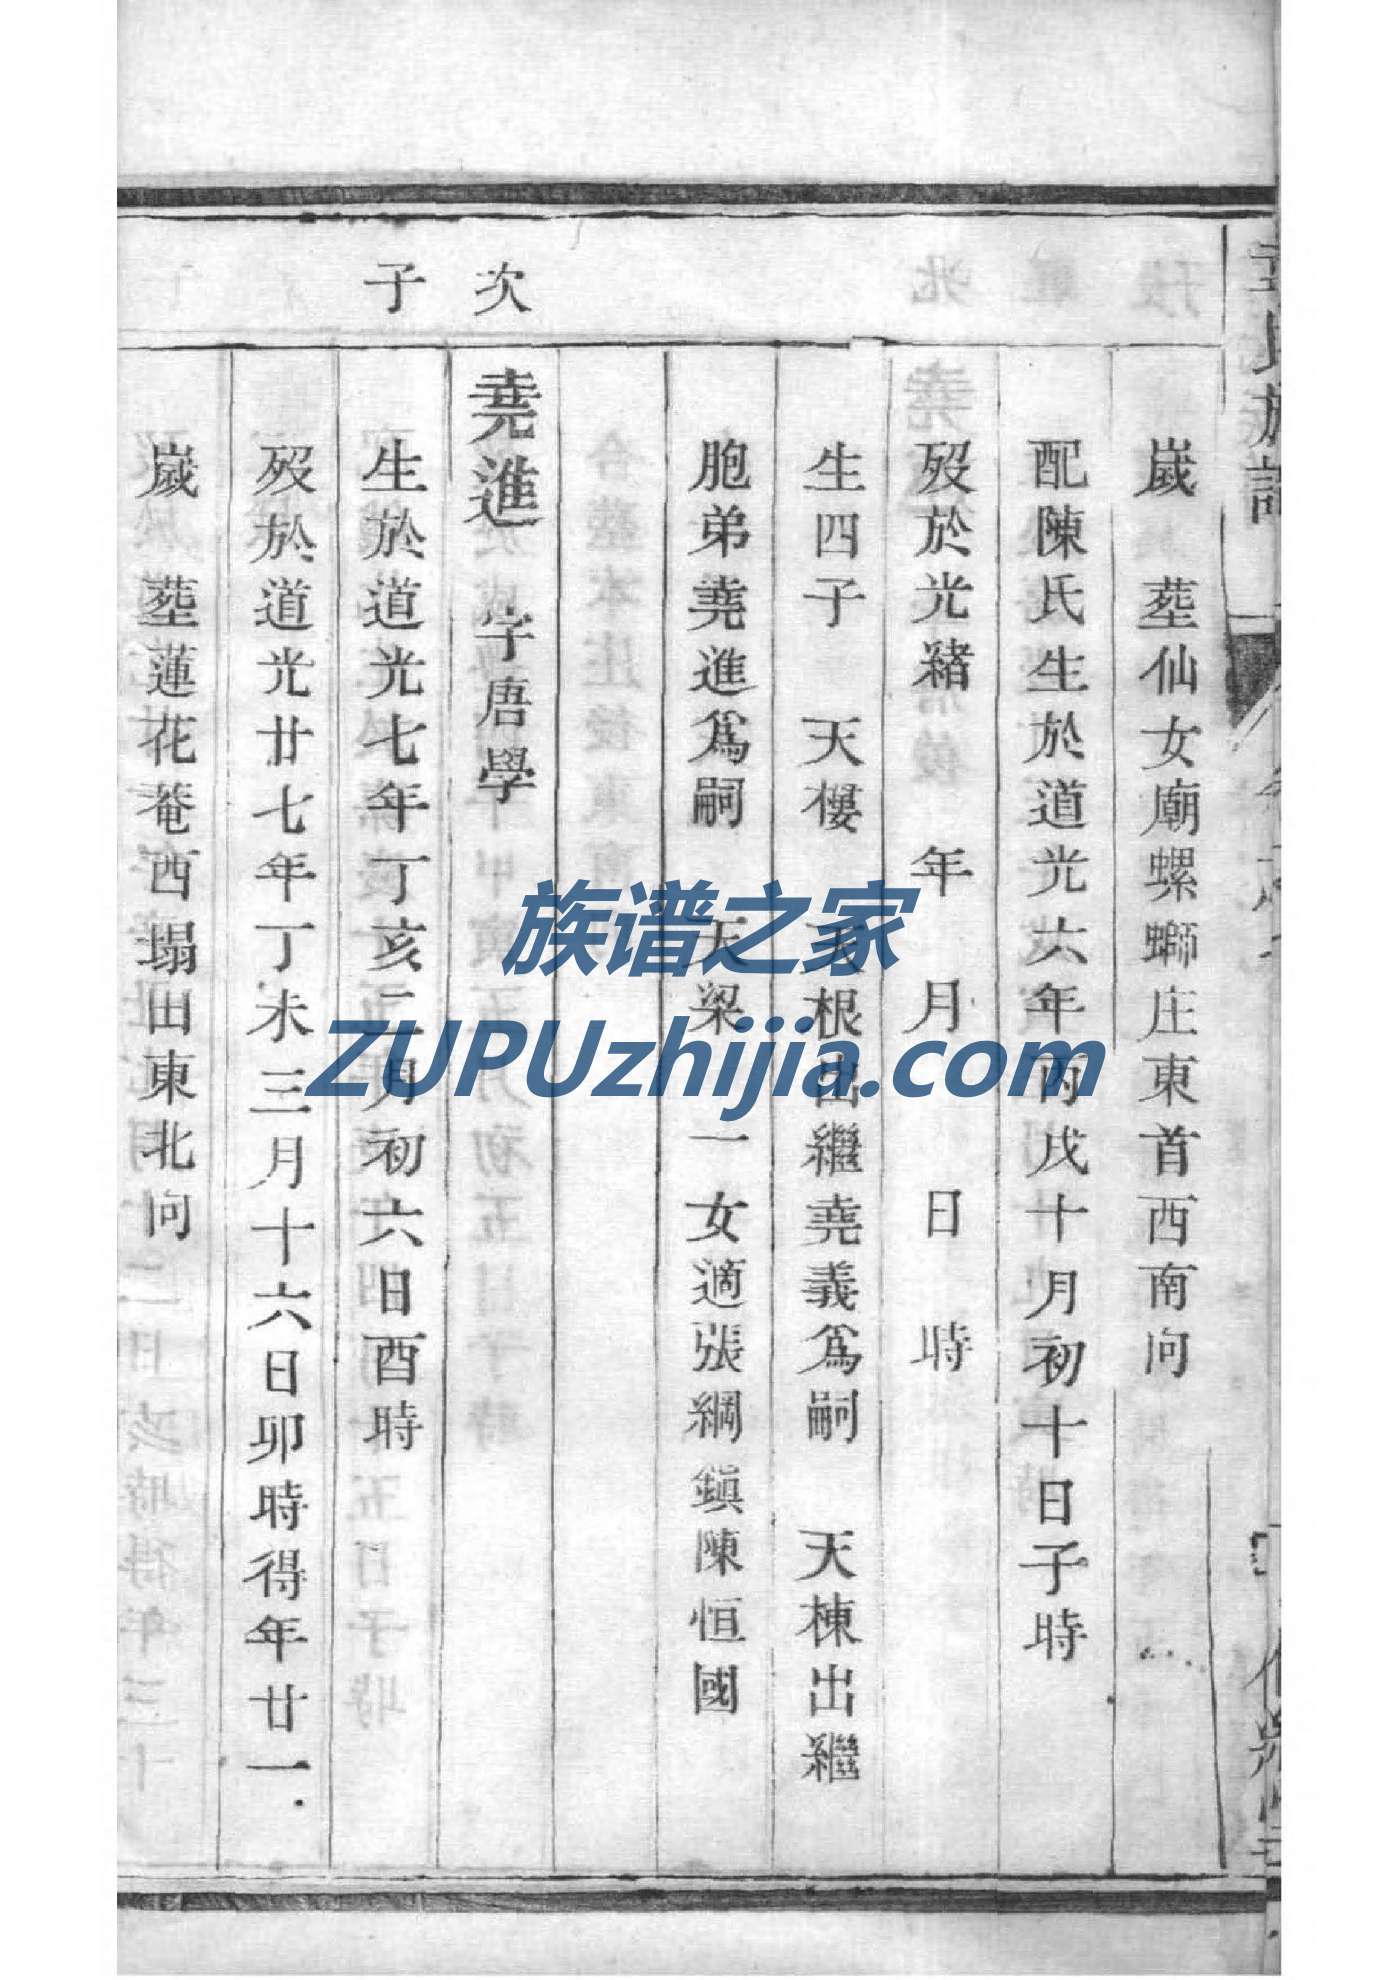 歲　塟仙女廟螺螄庄東首西南向
配陳氏生於道光六年丙戌十月初十日子時
歿於光緒　年　月　日　時
生四子　天樓　天根出繼堯義爲嗣　天棟出繼
胞弟堯進爲嗣　天梁　一女適張綱鎮陳恒國
次子
堯進　字唐學
生於道光七年丁亥二月初六日酉時
歿於道光廿七年丁未三月十六日卯時得年廿一
歲　塟蓮花菴西塌田東北向
族谱之家
ZUPUzhijia.com